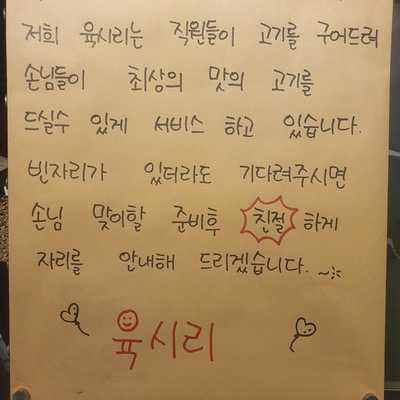 저희 육시리는 직원들이 고기를 구어드려
손님들이 최상의 맛의 고기를
드실수 있게 서비스 하고 있습니다.
빈자리가 있더라도 기다려주시면
손님 맞이할 준비후 친절 하게
자리를 안내해 드리겠습니다. ~
육시리